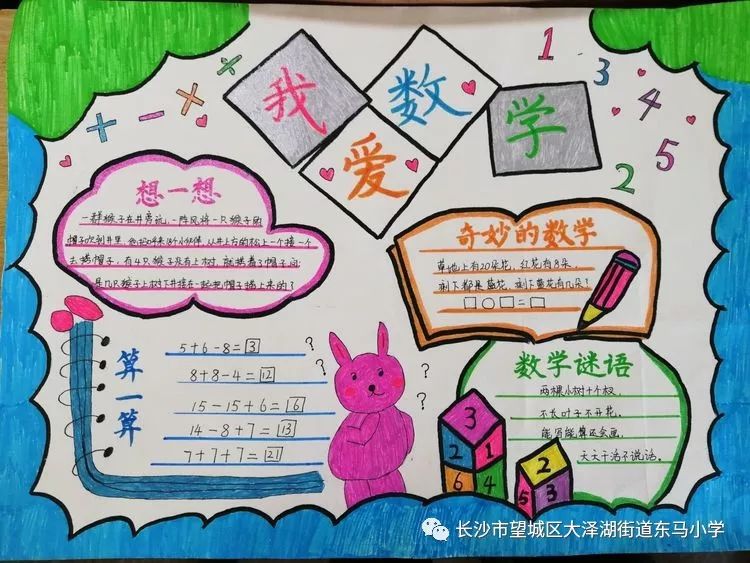 我爱数学
+ − × ÷
1 3 4 5 2
想一想
一群猴子在井旁玩,一阵风将一只猴子的
帽子吹到井里
从井上方的松上一个接一个
去捞帽子,有4只猴子没有上树,就捞着了帽子,问
几只猴子上树下井接在一起把帽子捞上来的?
奇妙的数学
草地上有20朵花,红花有8朵,
剩下都是蓝花,剩下蓝花有几朵?
□○□=□
算一算
5+6-8=3
8+8-4=12
15-15+6=6
14-8+7=13
7+7+7=21
? ? ? ?
数学谜语
两棵小树十个杈,
不长叶子不开花,
能写能算还会画,
天天干活不说话。
3
2 1
6 4
2
5 3
长沙市望城区大泽湖街道东马小学